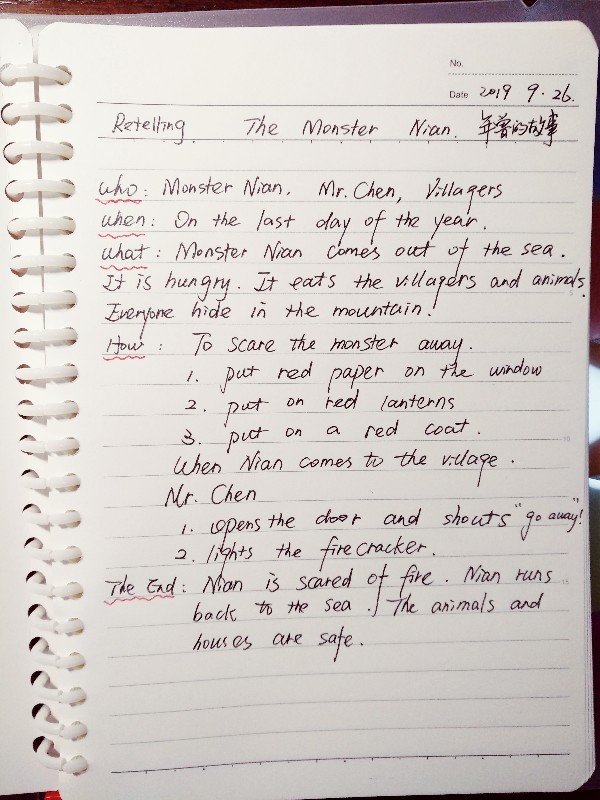 No.
Date 2019 9.26.
Retelling The Monster Nian. 年兽的故事
who: Monster Nian. Mr. Chen, Villagers
when: On the last day of the year.
what: Monster Nian comes out of the sea.
It is hungry. It eats the villagers and animals.
Everyone hide in the mountain!
How: To scare the monster away.
1. put red paper on the window
2. put on red lanterns
3. put on a red coat.
When Nian comes to the village.
Mr. Chen
1. opens the door and shouts "go away!"
2. lights the firecracker.
The End: Nian is scared of fire. Nian runs
back to the sea. The animals and
houses are safe.